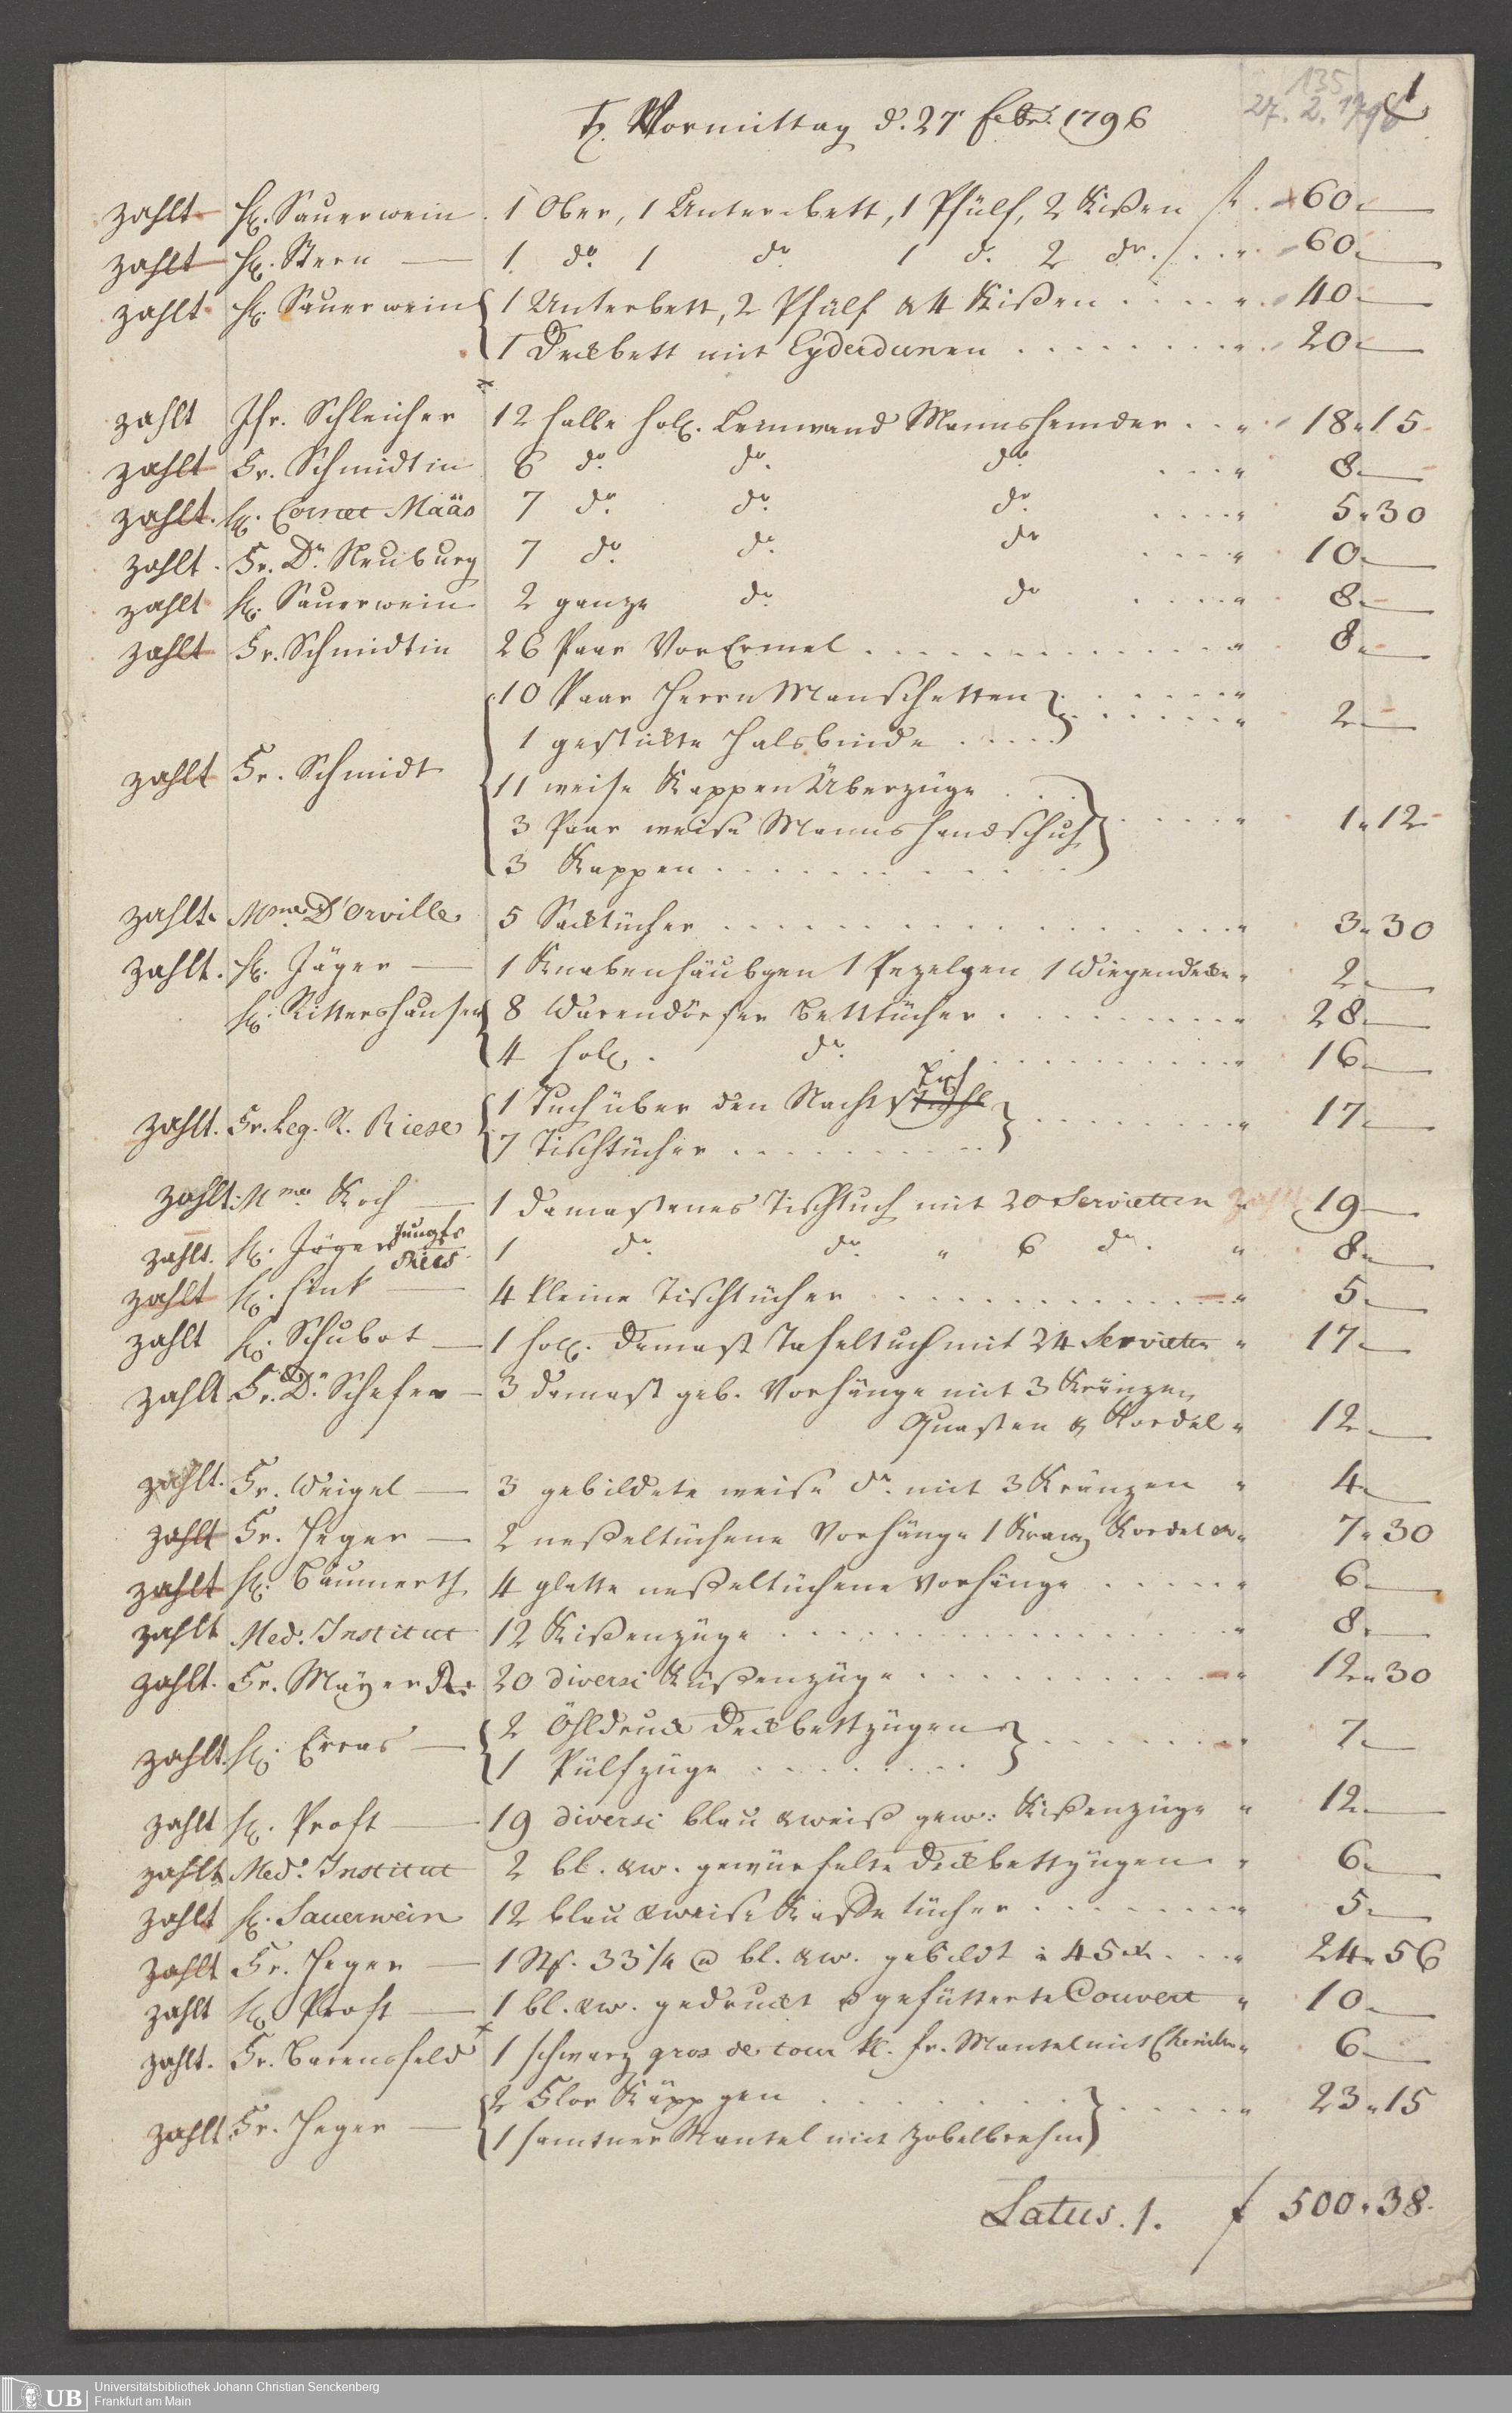 135
27. 2. 1798
1
Vormittag d. 27 Febr. 1796
zahlt H. Sauerwein 1 Ober, 1 Unterbett, 1 Pfülf, 2 Kißen f. 60 —
zahlt H. Stern — 1 do. 1 do 1 do. 2 do. 60 —
zahlt H. Sauerwein 1 Unterbett, 2 Pfülf & 4 Kißen 40 —
1 Deckbett mit Eyderdunen 20 —
zahlt Jfr. Schleicher 12 halbe holl. Leinwand Mannshemder 18 " 15
zahlt Fr. Schmidtin 6 do. do. do. 8 —
zahlt. H. Cornet Määs 7 do. do. do. 5 " 30
zahlt. Fr. Dr. Neuburg 7 do. do. do 10 —
zahlt H. Sauerwein 2 ganze do. do 8 —
zahlt Fr. Schmidtin 26 Paar VorErmel 8 —
10 Paar Herrn Manschetten
1 gestickte Halsbinde 2 —
zahlt Fr. Schmidt
11 weise Kappen Überzüge
3 Paar weise Manns handschuh 1 " 12
3 Kappen
zahlt. Mme. D'Orville 5 Sacktücher 3 " 30
zahlt. H. Jäger — 1 Knabenhäubgen 1 Pezelgen 1 Wiegendecke 2 —
H. Rittershausen 8 Warendörfer Betttücher 28 —
4 holl. do. 16 —
tisch
1 Tuch über den Nachtstuhl
zahlt. Fr. Leg. R. Riese 17 —
7 Tischtücher
zahlt. Mme. Koch — 1 damastenes Tischtuch mit 20 Servietten zahlt 19 —
zahlt. H. Jäger Jungfr Ries 1 do. do. " 6 do. " 8 —
zahlt H. Fink — 4 kleine Tischtücher 5 —
zahlt H. Schubot — 1 holl. damast Tafeltuch mit 24 Servietten " 17 —
zahlt Fr. Dr. Schefer — 3 damast geb. Vorhänge mit 3 Kränzen
Quasten & Kordel " 12 —
zahlt. Fr. Weigel — 3 gebildete weise do. mit 3 Kränzen " 4 —
zahlt Fr. Heger — 2 neßeltüchene Vorhänge 1 Kranz Kordel & 7 " 30
zahlt H. Bäumerth 4 glatte neßeltüchene Vorhänge 6 —
zahlt Med. Institut 12 Kißenzüge 8 —
zahlt. Fr. Mayer 20 diversi Küßenzüge 12 " 30
2 Öhldruck Deckbettzügen
zahlt. H. Erras — 7 —
1 Pülfzüge
zahlt H. Proft — 19 diversi blau & weiß gew: Kißenzüge " 12 —
zahlt Med. Institut 2 bl. & w. gewürfelte Deckbettzügen " 6 —
zahlt H. Sauerwein 12 blau & weise Kaffetücher 5 —
zahlt Fr. Heger — 1 Stk. 33 1/4 @ bl. & w. gebildt à 45 x 24 " 56
zahlt H. Proft — 1 bl. & w. gedruckt gefütterte Couvert " 10 —
zahlt. Fr. Berensfeld 1 schwarz gros de tour fr. Mantel mit 6 —
2 Flor Käppgen 23 " 15
zahlt Fr. Heger —
1 samtner Mantel mit Zobelbrehm
Latus. 1. f 500 " 38.
UB Universitätsbibliothek Johann Christian Senckenberg
Frankfurt am Main